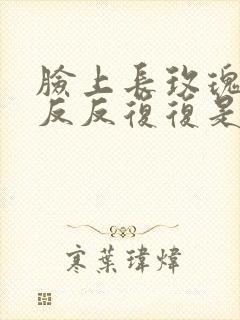 臉上長玫瑰
反反復復是
寒葉瑋煒